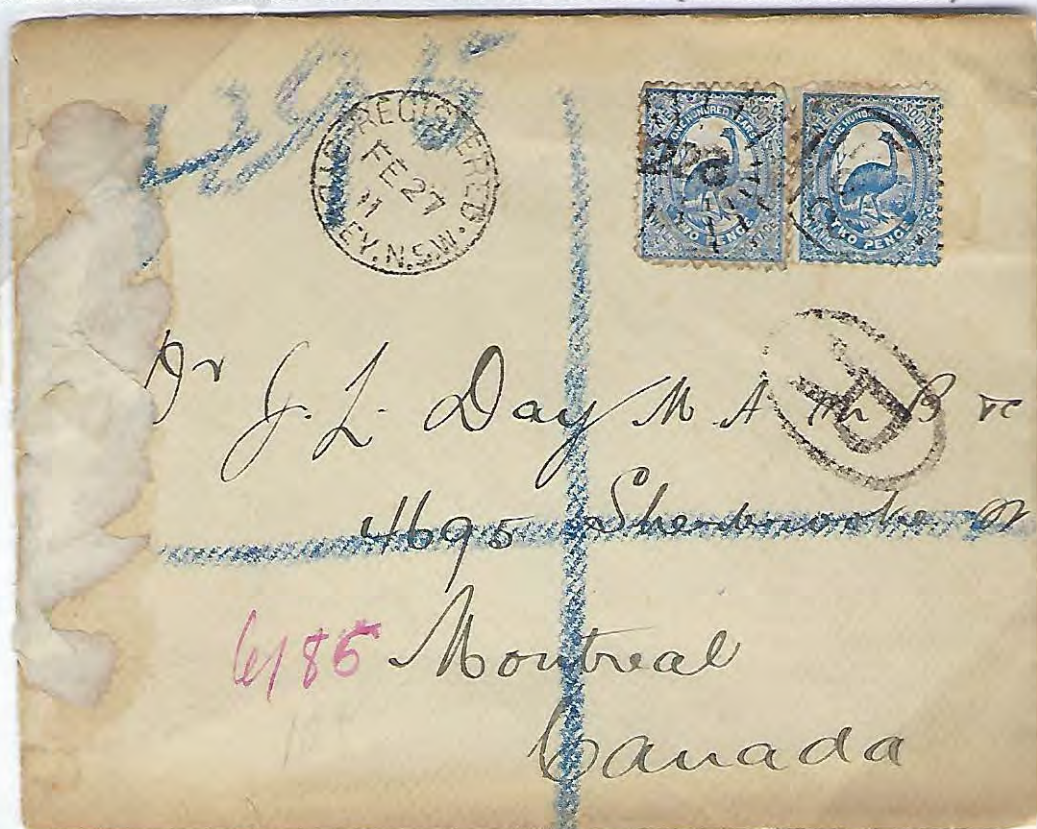 REGISTERED
FE 27
11
SYDNEY. N.S.W.
ONE HUNDRED YEARS
TWO PENCE
ONE HUNDRED
SOUTH
TWO PENCE
R
Dr J. L. Day M. A. M. B
4695 Sherbrooke St
6185 Montreal
Canada